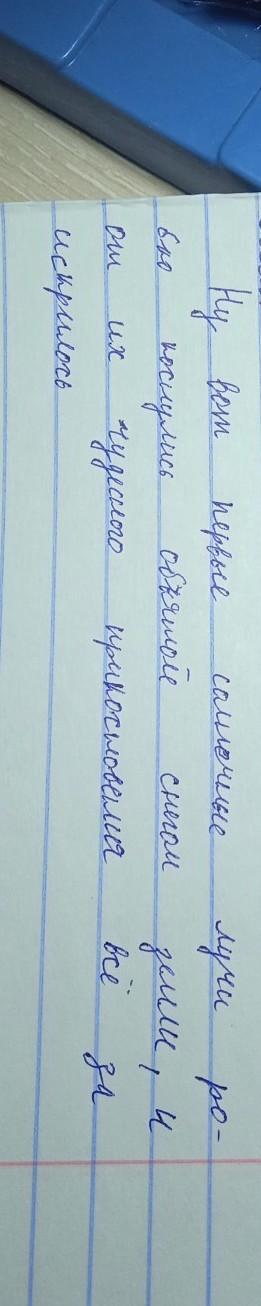 Ну вот первые солнечные лучи ро-
бко коснулись объятой снегом земли, и
от их чудесного прикосновения всё за
искрилось